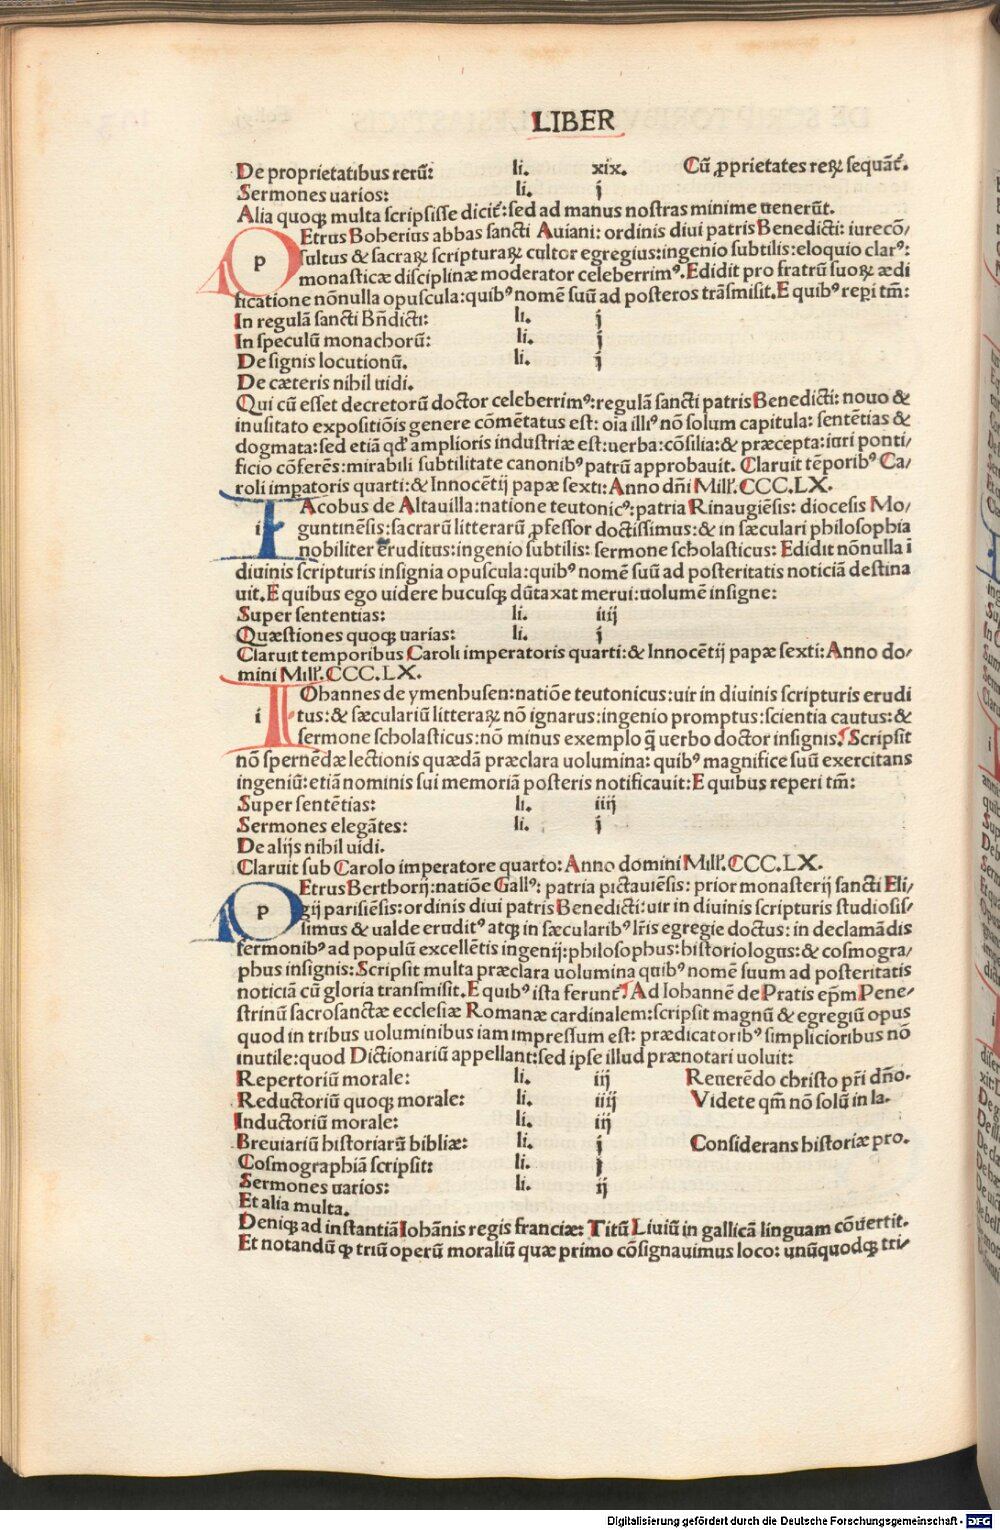 LIBER
De proprietatibus rerū: li. xix. Cū ꝓprietates reꝝ sequāt᷑.
Sermones uarios: li. j
Alia quoqꝫ multa scripsisse dicit᷑: sed ad manus nostras minime uenerūt.
PEtrus Boherius abbas sancti Auiani: ordinis diui patris Benedicti: iurecō/
sultus & sacraꝝ scripturaꝝ cultor egregius: ingenio subtilis: eloquio clarꝰ:
monasticæ disciplinæ moderator celeberrimꝰ. Edidit pro fratrū suoꝝ ædi
ficatione nōnulla opuscula: quibꝰ nomē suū ad posteros trāsmisit. E quibꝰ reꝑi tm̄:
In regulā sancti Bn̄dicti: li. j
In speculū monachorū: li. j
De signis locutionū. li. j
De cæteris nihil uidi.
Qui cū esset decretorū doctor celeberrimꝰ: regulā sancti patris Benedicti: nouo &
inusitato expositiōis genere cōmētatus est: oīa illiꝰ nō solum capitula: sentētias &
dogmata: sed etiā qd' amplioris industriæ est: uerba: cōsilia: & præcepta: iuri ponti/
ficio cōferēs: mirabili subtilitate canonibꝰ patrū approbauit. Claruit tēporibꝰ Ca/
roli imꝑatoris quarti: & Innocētij papæ sexti: Anno dn̄i Mill'. CCC. LX.
IAcobus de Altauilla: natione teutonicꝰ: patria Rinaugiēsis: diocesis Mo/
guntinēsis: sacrarū litterarū ꝓfessor doctissimus: & in sæculari philosophia
nobiliter eruditus: ingenio subtilis: sermone scholasticus: Edidit nōnulla ī
diuinis scripturis insignia opuscula: quibꝰ nomē suū ad posteritatis noticiā destina
uit. E quibus ego uidere hucusqꝫ dūtaxat merui: uolumē insigne:
Super sententias: li. iiij
Quæstiones quoqꝫ uarias: li. j
Claruit temporibus Caroli imperatoris quarti: & Innocētij papæ sexti: Anno do/
mini Mill'. CCC. LX.
IOhannes de ymenhusen: natiōe teutonicus: uir in diuinis scripturis erudi
tus: & sæculariū litteraꝝ nō ignarus: ingenio promptus: scientia cautus: &
sermone scholasticus: nō minus exemplo q̄ uerbo doctor insignis. Scripsit
nō spernēdæ lectionis quædā præclara uolumina: quibꝰ magnifice suū exercitans
ingeniū: etiā nominis sui memoriā posteris notificauit: E quibus reperi tm̄:
Super sentētias: li. iiij
Sermones elegātes: li. j
De alijs nihil uidi.
Claruit sub Carolo imperatore quarto: Anno domini Mill'. CCC. LX.
PEtrus Berthorij: natiōe Gallꝰ: patria pictauiēsis: prior monasterij sancti Eli/
gij parisiēsis: ordinis diui patris Benedicti: uir in diuinis scripturis studiosis/
simus & ualde eruditꝰ atqꝫ in sæcularibꝰ lr̄is egregie doctus: in declamādis
sermonibꝰ ad populū excellētis ingenij: philosophus: historiologus: & cosmogra/
phus insignis: Scripsit multa præclara uolumina quibꝰ nomē suum ad posteritatis
noticiā cū gloria transmisit. E quibꝰ ista ferunt᷑: Ad Iohannē de Pratis ep̄m Pene/
strinū sacrosanctæ ecclesiæ Romanæ cardinalem: scripsit magnū & egregiū opus
quod in tribus uoluminibus iam impressum est: prædicatoribꝰ simplicioribus nō
inutile: quod Dictionariū appellant: sed ipse illud prænotari uoluit:
Repertoriū morale: li. iij Reuerēdo christo pr̄i dn̄o.
Reductoriū quoqꝫ morale: li. iiij Videte qm̄ nō solū in la.
Inductoriū morale: li. iij
Breuiariū historiarū bibliæ: li. j Considerans historiæ pro.
Cosmographiā scripsit: li. j
Sermones uarios: li. ij
Et alia multa.
Deniqꝫ ad instantiā Iohānis regis franciæ: Titū Liuiū in gallicā linguam cōuertit.
Et notandū ꝙ triū operū moraliū quæ primo cōsignauimus loco: unūquodqꝫ tri/
Digitalisierung gefördert durch die Deutsche Forschungsgemeinschaft - DFG